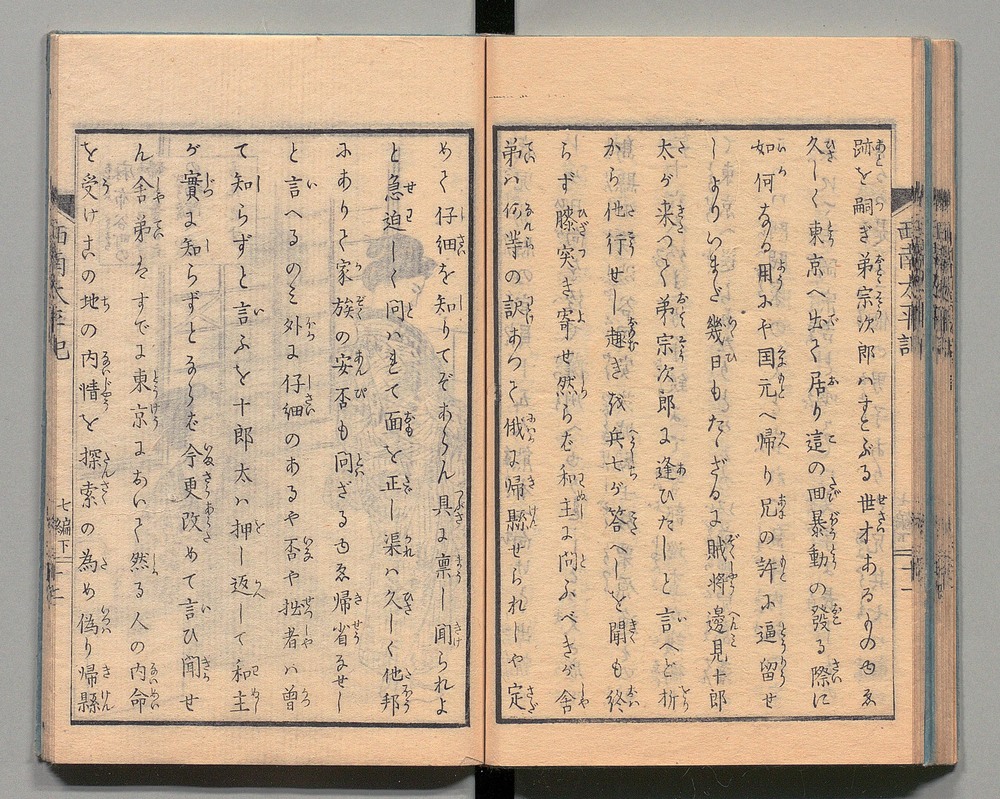 跡を嗣ぎ弟宗次郎ハすこぶる世才あるものゆゑ
久しく東京へ出て居り這の回暴動の發る際に
如何なる用にや国元へ帰り兄の許に逼留せ
しよりいまだ幾日もたゝざるに賊将邊見十郎
太が来つて弟宗次郎に逢ひたしと言へど折
から他行せし趣きを兵七が答へしを聞も終
らず膝突き寄せ然らバ和主に問ふべきが舎
弟ハ何等の訳あつて俄に帰縣せられしや定
めて仔細を知りてぞあらん具に禀し聞られよ
と急迫しく問ハれて面を正し渠ハ久しく他邦
にありて家族の安否も問ざるゆゑ帰省なせし
と言へるのミ外に仔細のあるや否や拙者ハ曽
て知らずと言ふを十郎太ハ押し返して和主
が實に知らずとならば今更改めて言ひ聞せ
ん舎弟はすでに東京において然る人の内命
を受け古の地の内情を探索の為め偽り帰縣
西南太平記
七編下